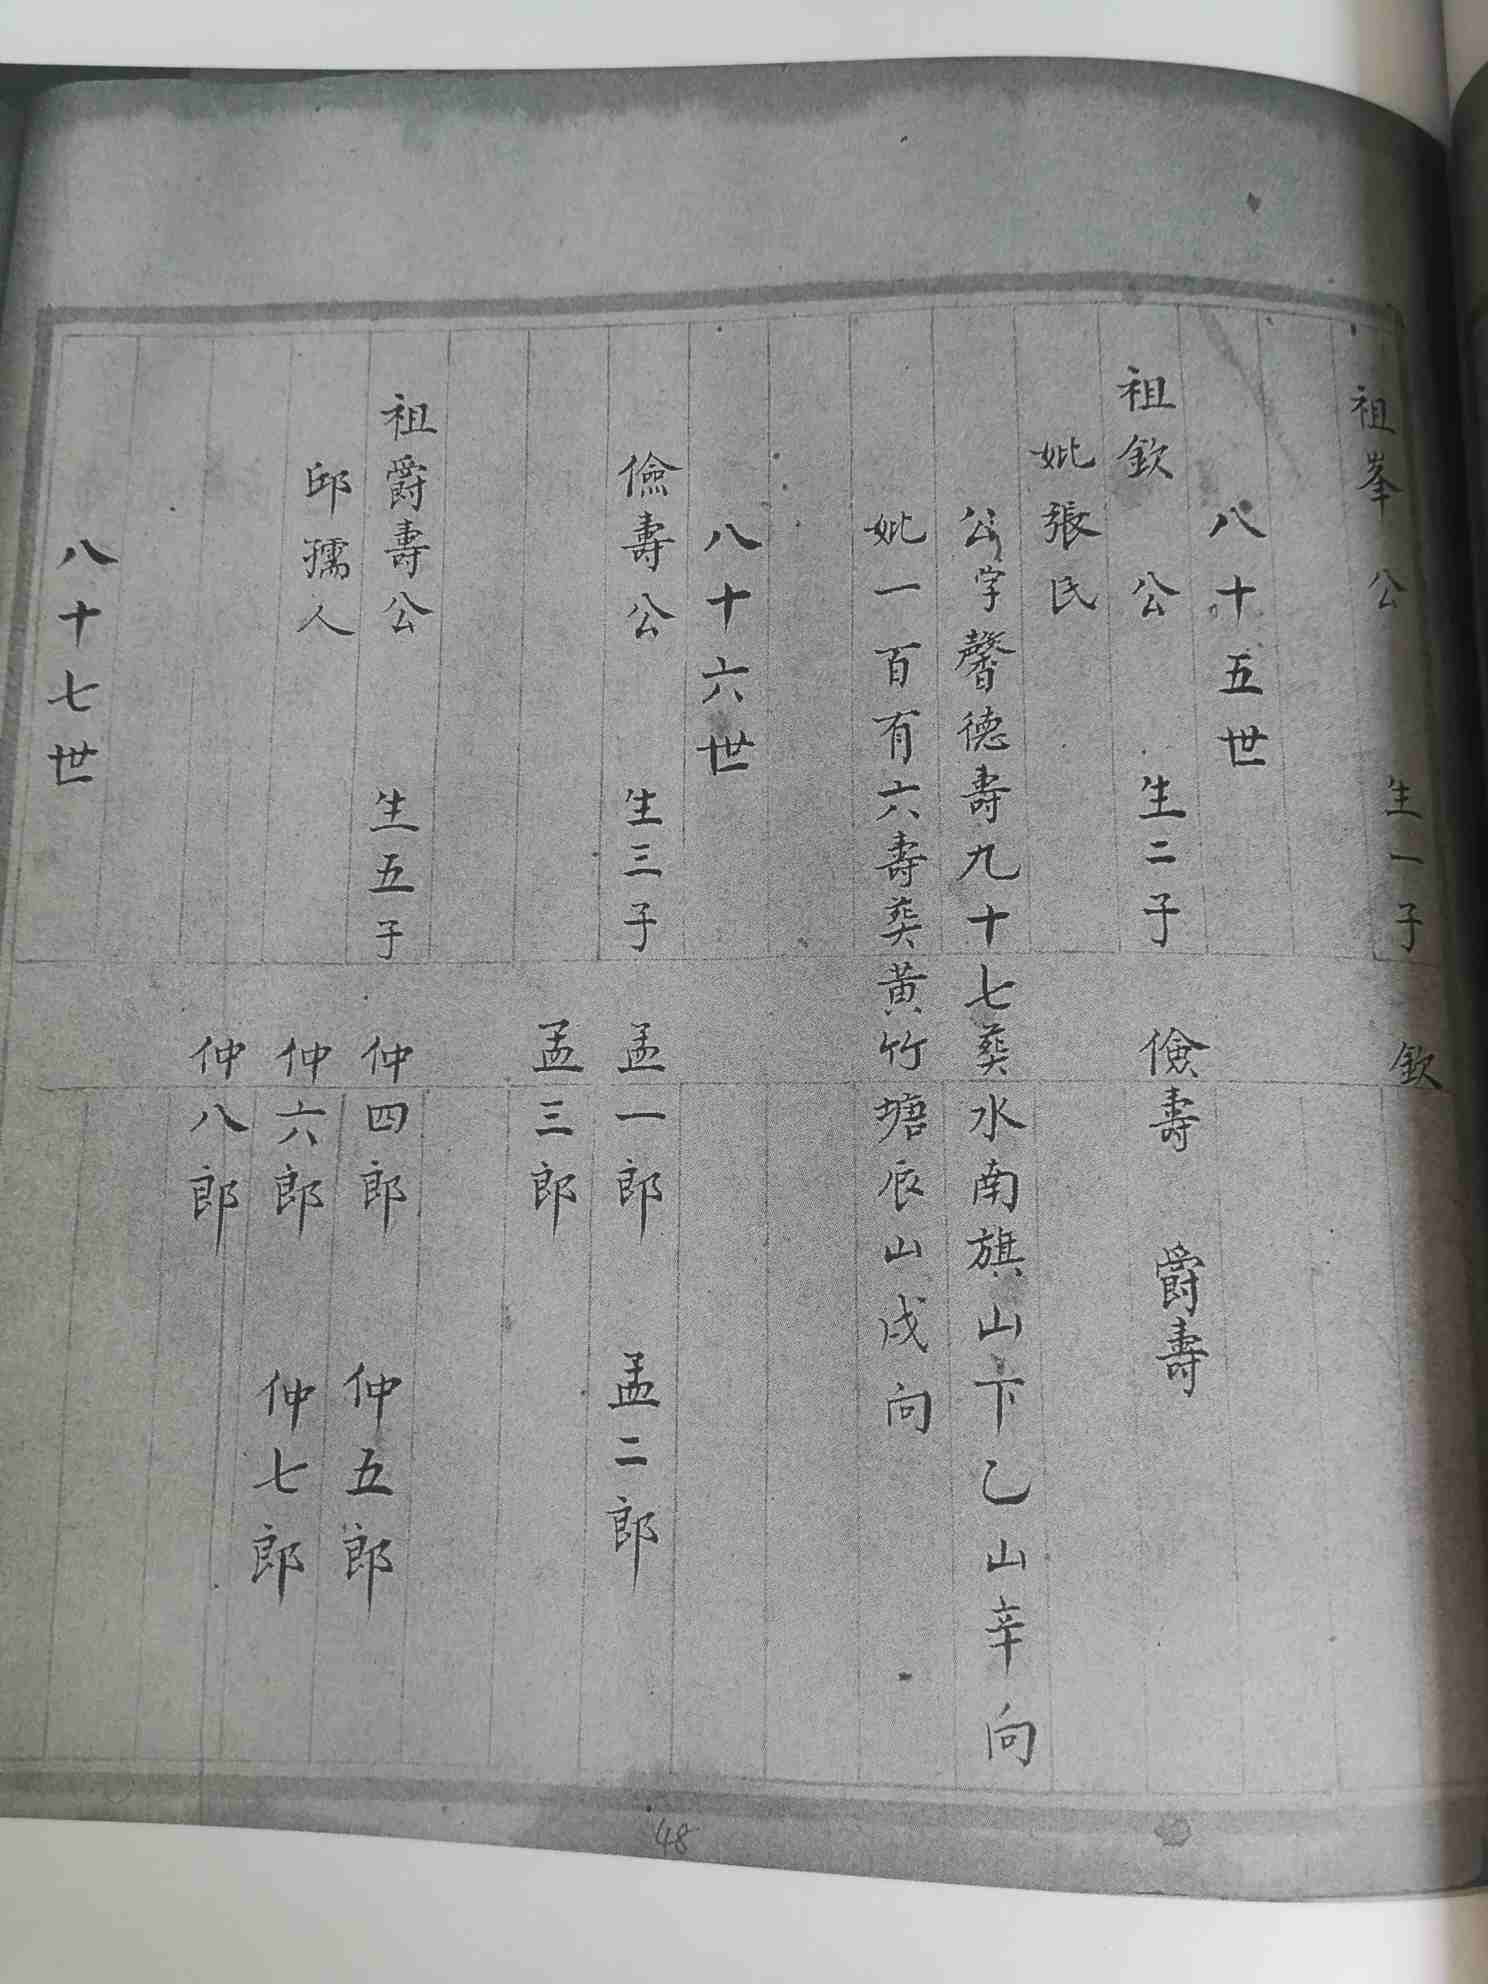 祖峯公 生一子 欽
八十五世
祖欽公 生二子 儉壽 爵壽
妣張氏
公字馨德壽九十七葬水南旗山下乙山辛向
妣一百有六壽葬黄竹塘辰山戌向
八十六世
儉壽公 生三子 孟一郎 孟二郎
孟三郎
祖爵壽公 生五子 仲四郎 仲五郎
邱孺人 仲六郎 仲七郎
仲八郎
八十七世
48